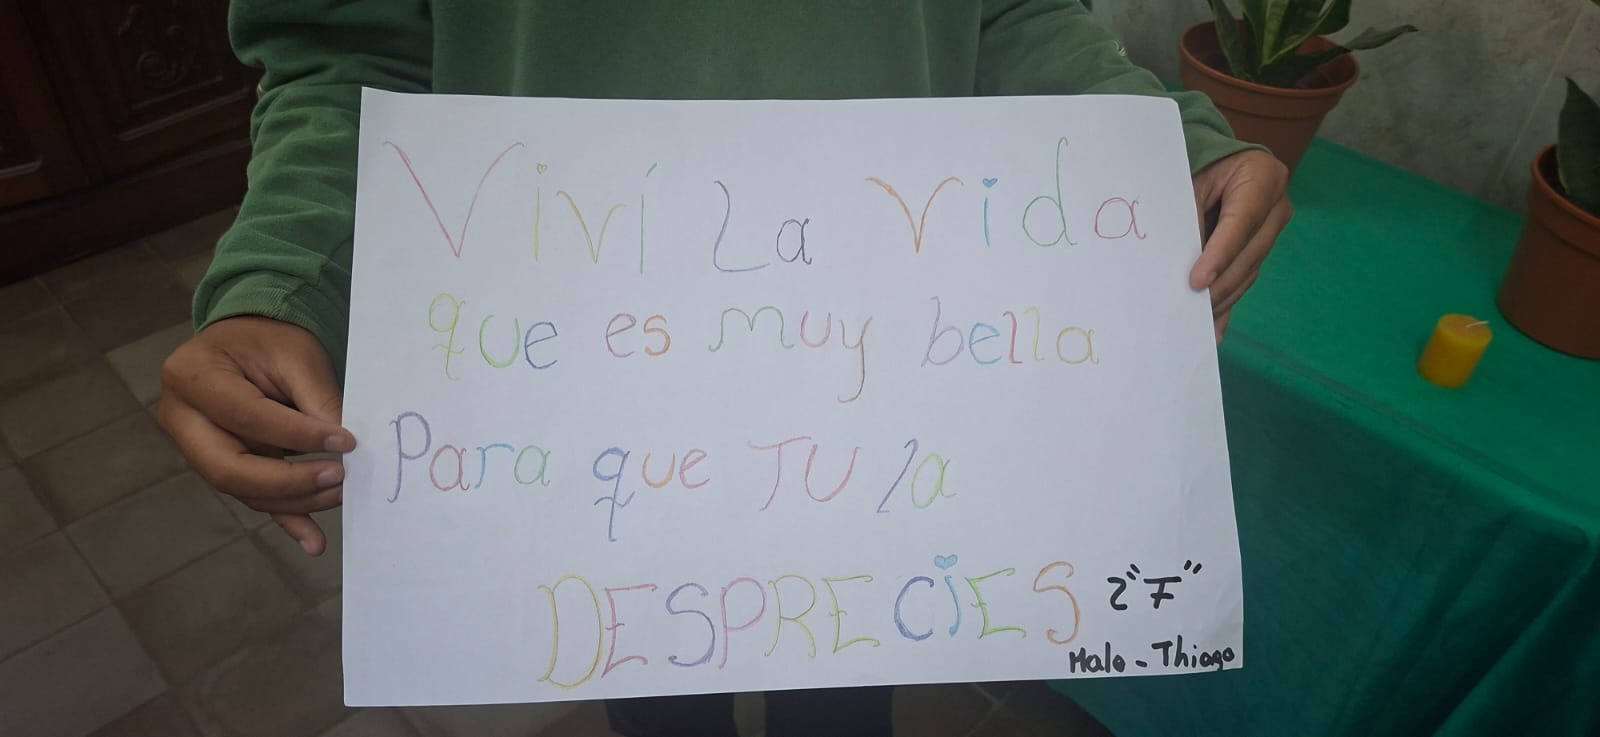 Viví La vida
que es muy bella
Para que TU la
DESPRECiES
2"F"
Malo - Thiago